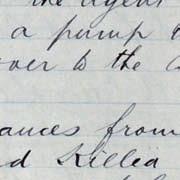 the agent
a pump
over to the
ances from
d Killed